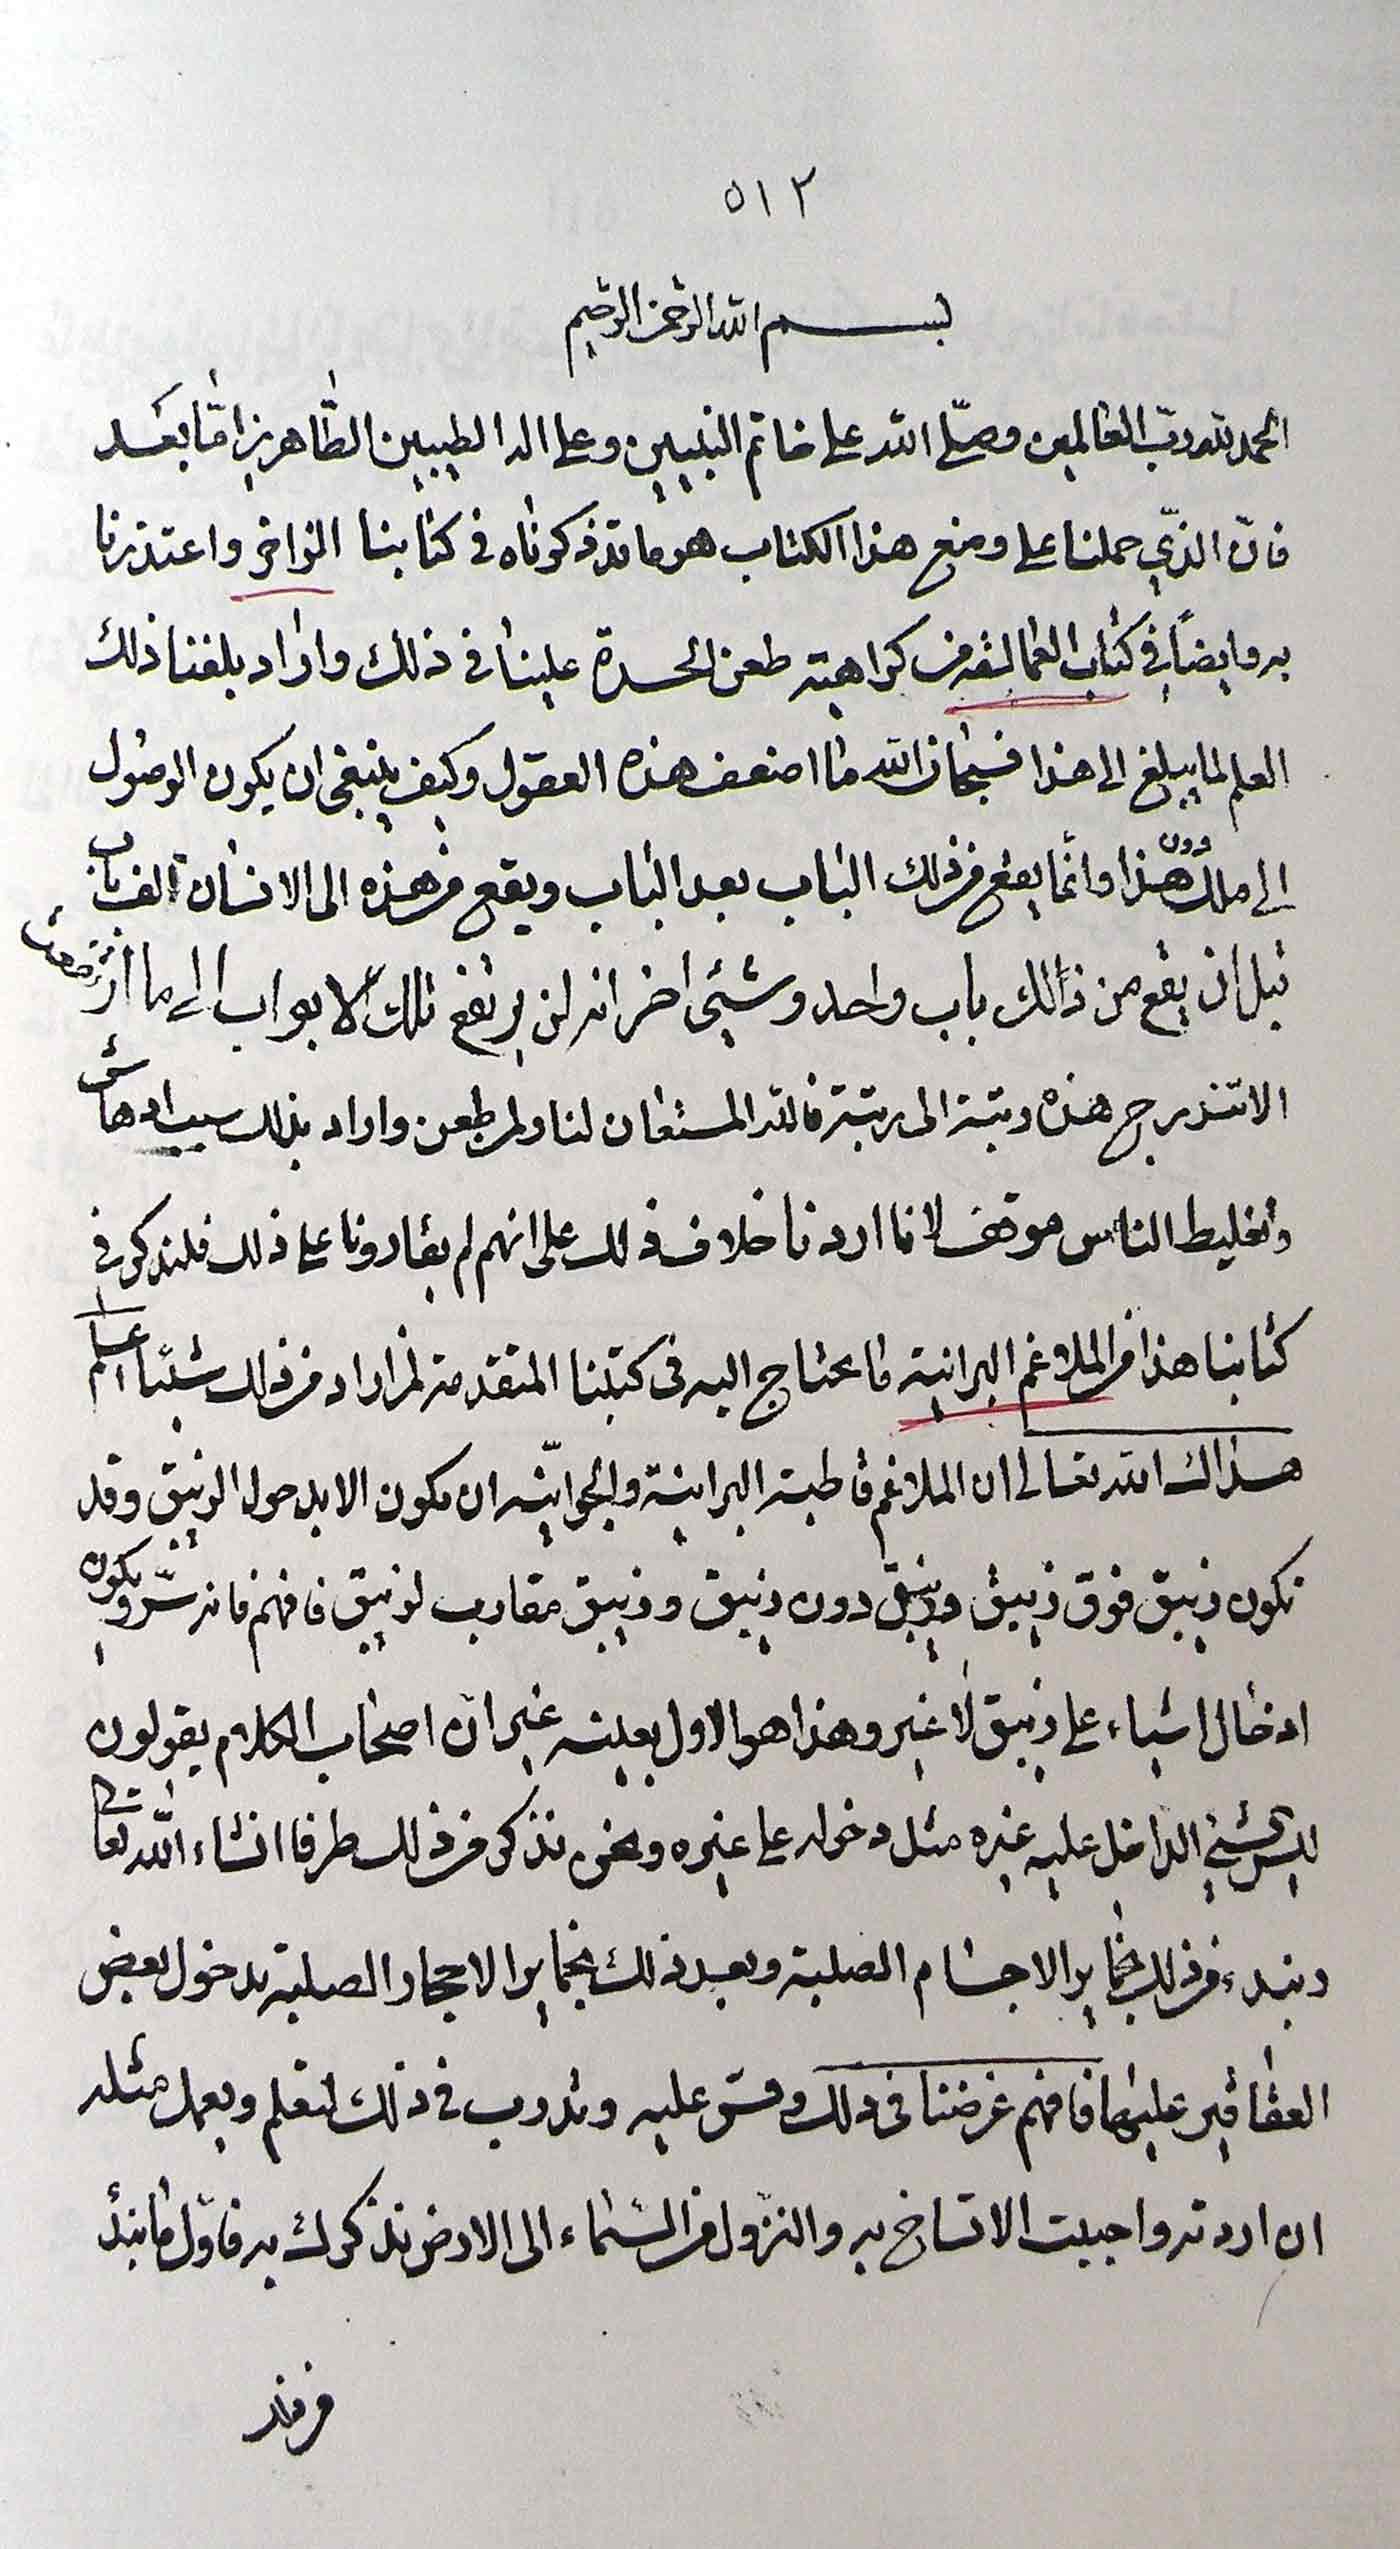 ٥١٢
بسم الله الرحمن الرحيم
الحمد لله رب العالمين وصلّى الله على خاتم النبيين وعلى اله الطيبين الطّاهرين امّا بعد
فانّ الذّي حملنا على وضع هذا الكتاب هو ما قد ذكرناه في كتابنا الزاخر واعتذرنا
به وايضاً في كتاب العمالقه من كراهية طعن الحسدة علينا في ذلك واراد بلغنا ذلك
العلم لما يبلغ الى هذا فسبحان الله ما اضعف هذه العقول وكيف ينبغي ان يكون الوصول
الى ملك دون هذا وانّما يقع من ذلك الباب بعد الباب ويقع من هذه الى الانسان الف باب
قبل ان يقع من ذالك باب واحد وشيئى اخر انه لن يرتفع تلك الابواب الى ما
الا تتدرج هذه رتبة الى رتبة فالله المستعان لنا ولمن طعن واراد بذلك
وتغليط الناس لانا اردنا خلاف ذلك على انهم لم يقارونا على ذلك فلنذكر في
كتابنا هذا من الملاغم البرانية ما يحتاج اليه في كتبنا المتقدمة لمن اراد من ذلك شيئا اعلم
هداك الله تعالى ان الملاغم قاطبة البرانية والجوانيّه ان يكون الابد حول الزيبق وقد
تكون زيبق فوق زيبق وزيبق دون زيبق وزيبق مقارب لزيبق فافهم فانه سرّ ويكون
ادخال اشياء على زيبق لا غير وهذا هو الاول بعينه غير انّ اصحاب الكلام يقولون
ليس شيئ الداخل عليه غيره مثل دخوله على غيره ونحن نذكر من ذلك طرفا انشاء الله تعالى
ونبدء من ذلك بخماير الاجسام الصلبة وبعد ذلك بخماير الاحجار الصلبة بدخول بعض
العقاقير عليها فافهم غرضنا في ذلك وقس عليه وتدرب في ذلك لتعلم وبعمل مثله
ان اردته واحببت الاتساخ به والنزول من السّماء الى الارض نذكر لك به فاوّل ما نبدأ